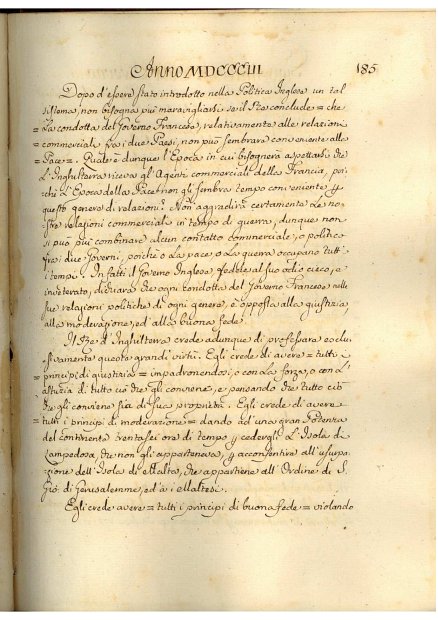 Anno MDCCCIII 185
Dopo d'essere stato introdotto nella Politica Inglese un tal
sistema, non bisogna più maravigliarsi se il Re conclude = che
= La condotta del Governo Francese, relativamente alle relazioni
= commerciali fra i due Paesi, non può sembrare conveniente alla
Pace =. Quale è dunque l'Epoca in cui bisognerà aspettarsi che
L'Inghilterra riceva gl'Agenti commerciali della Francia, poi=
chè L'Epoca della Pace non gli sembra tempo conveniente p
questo genere di relazioni? Non aggradirà certamente Le no=
stre relazioni commerciali in tempo di guerra, dunque non
si può più combinare alcun contatto commerciale, o politico
fra i due Governi, poichè o La pace, o La guerra occupano tutt'
i tempi. In fatti il Governo Inglese fedele al suo odio cieco, e
inveterato, dichiara che ogni condotta del Governo Francese nelle
sue relazioni politiche di ogni genere, è opposta alla giustizia,
alla moderazione, ed alla buona fede.
Il Re d'Inghilterra crede adunque di professare esclu=
sivamente queste grandi virtù. Egli crede di avere = tutti i
principj di giustizia = impadronendosi, o con La forza, o con L'
astuzia di tutto ciò che gli conviene, e pensando che tutto ciò
che gli conviene sia di sua proprietà. Egli crede di avere =
= tutti i principj di moderazione = dando ad una gran Potenza
del continente trentasei ore di tempo p cedergli L'Isola di
Lampedosa, che non gli apparteneva, p acconsentire all'usurpa=
zione dell'Isola di Malta, che appartiene all'Ordine di S.
Gio: di Gerusalemme, ed a i Maltesi.
Egli crede avere = tutti i principj di buona fede = violando